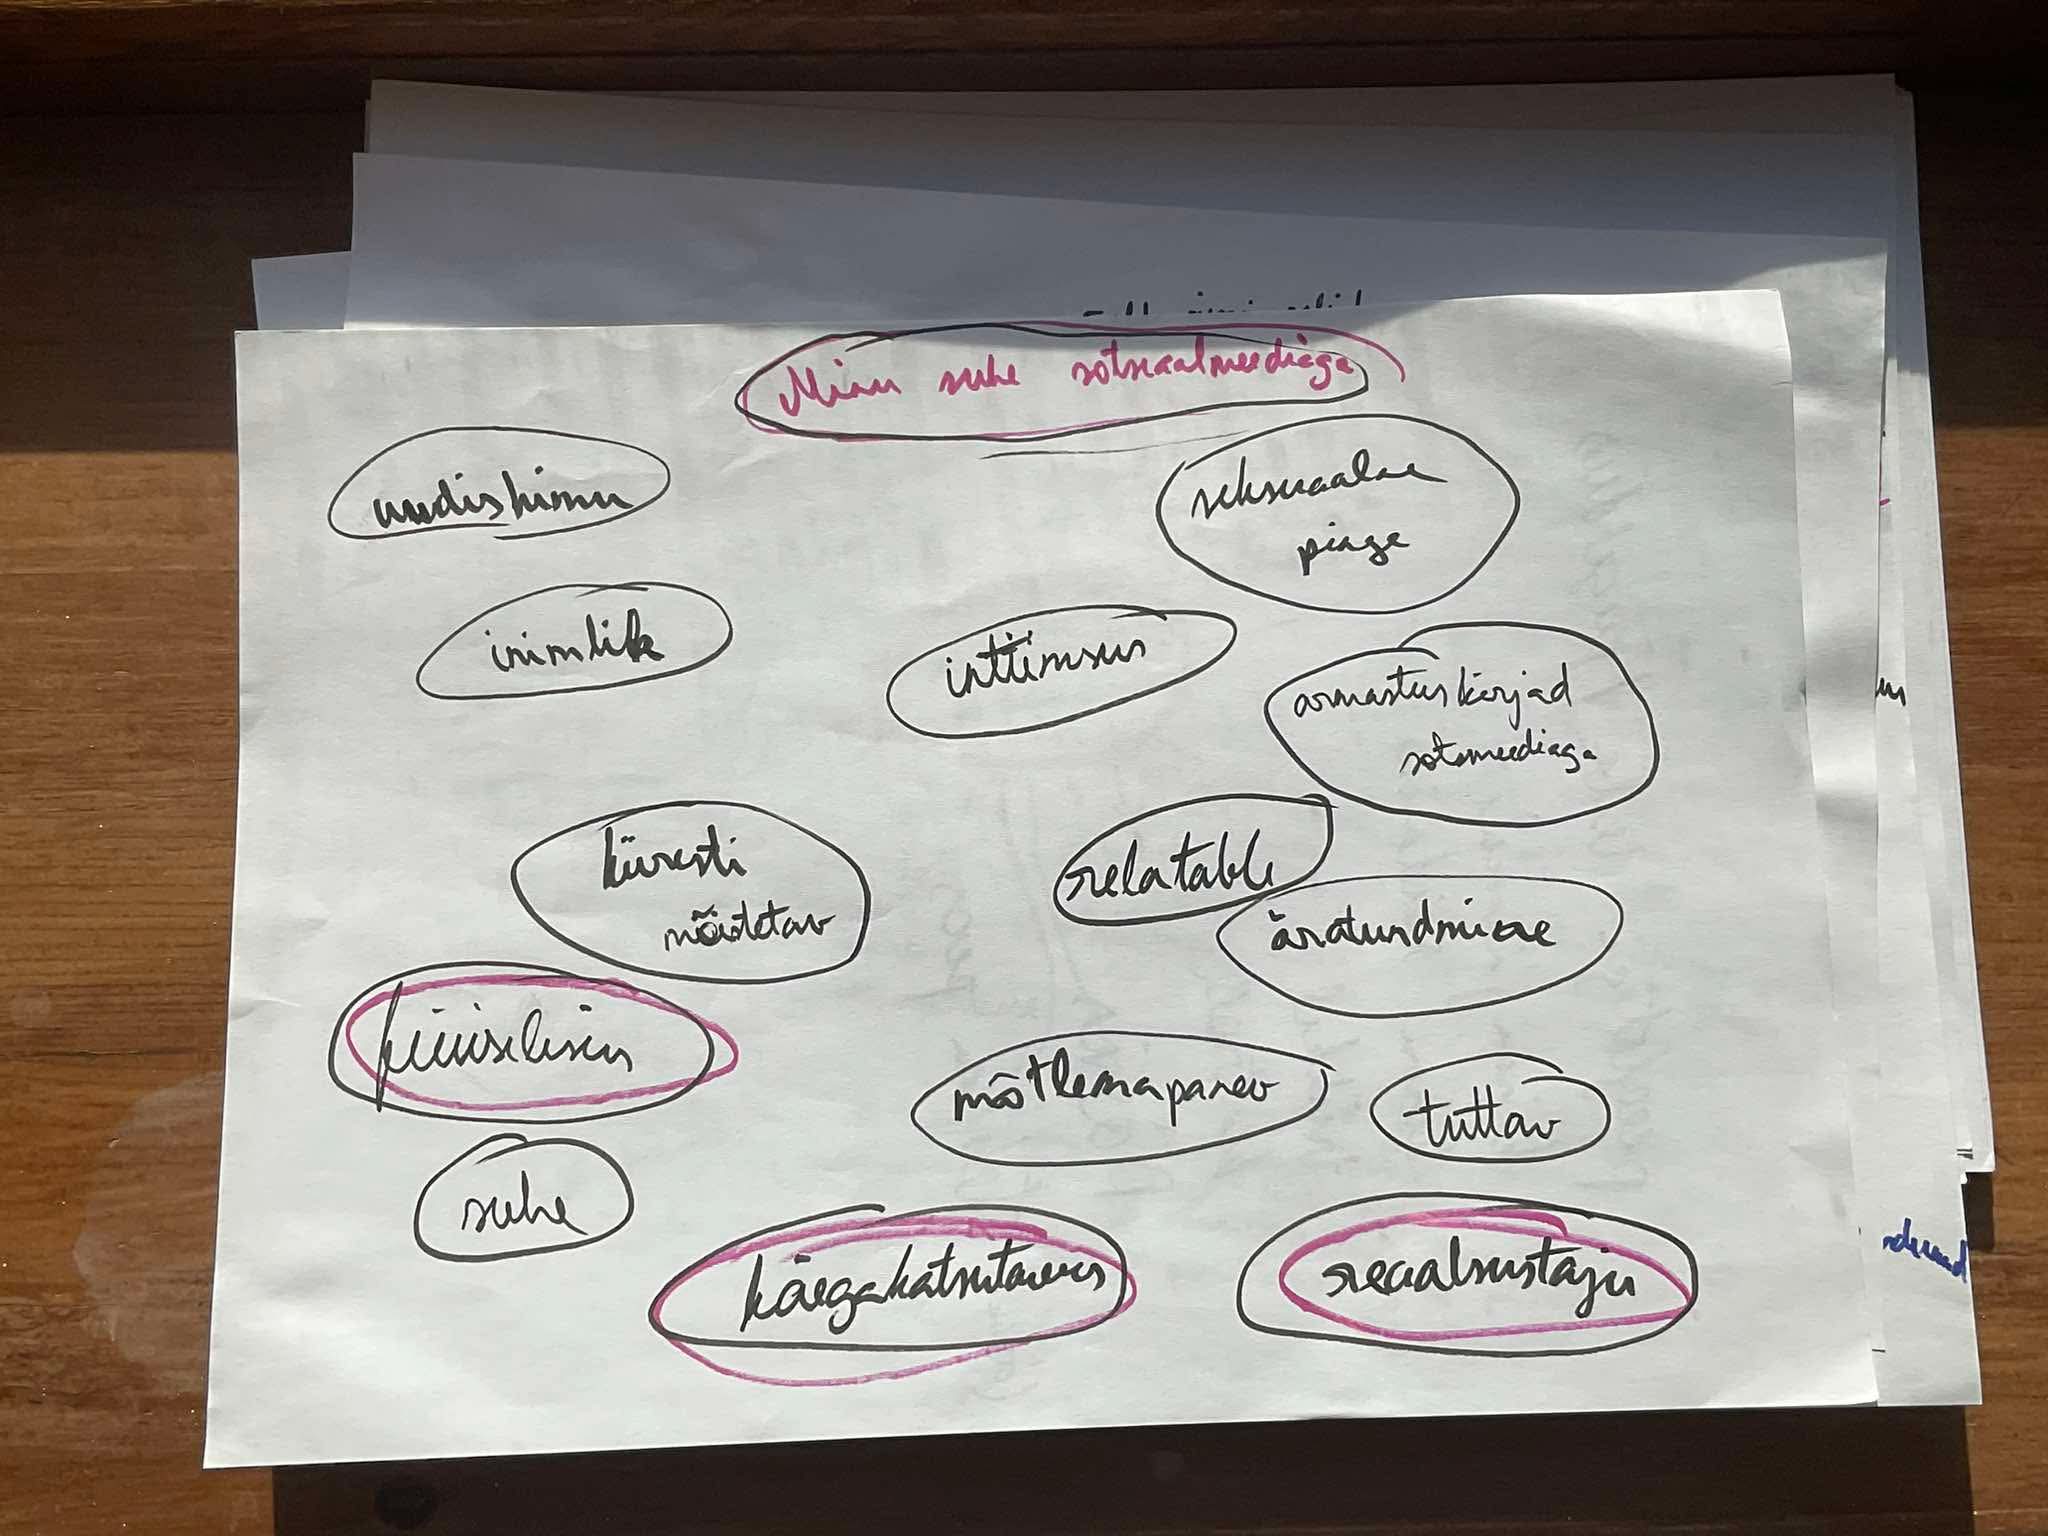 Minu suhe sotsiaalmeediaga
uudishimu
seksuaalne
pinge
inimlik
intiimsus
armastuskirjad
sotsmeediaga
kiiresti
mõistetav
relatable
äratundmine
füüsilisus
mõtlemapanev
tuttav
suhe
käegakatsutavus
reaalsustaju